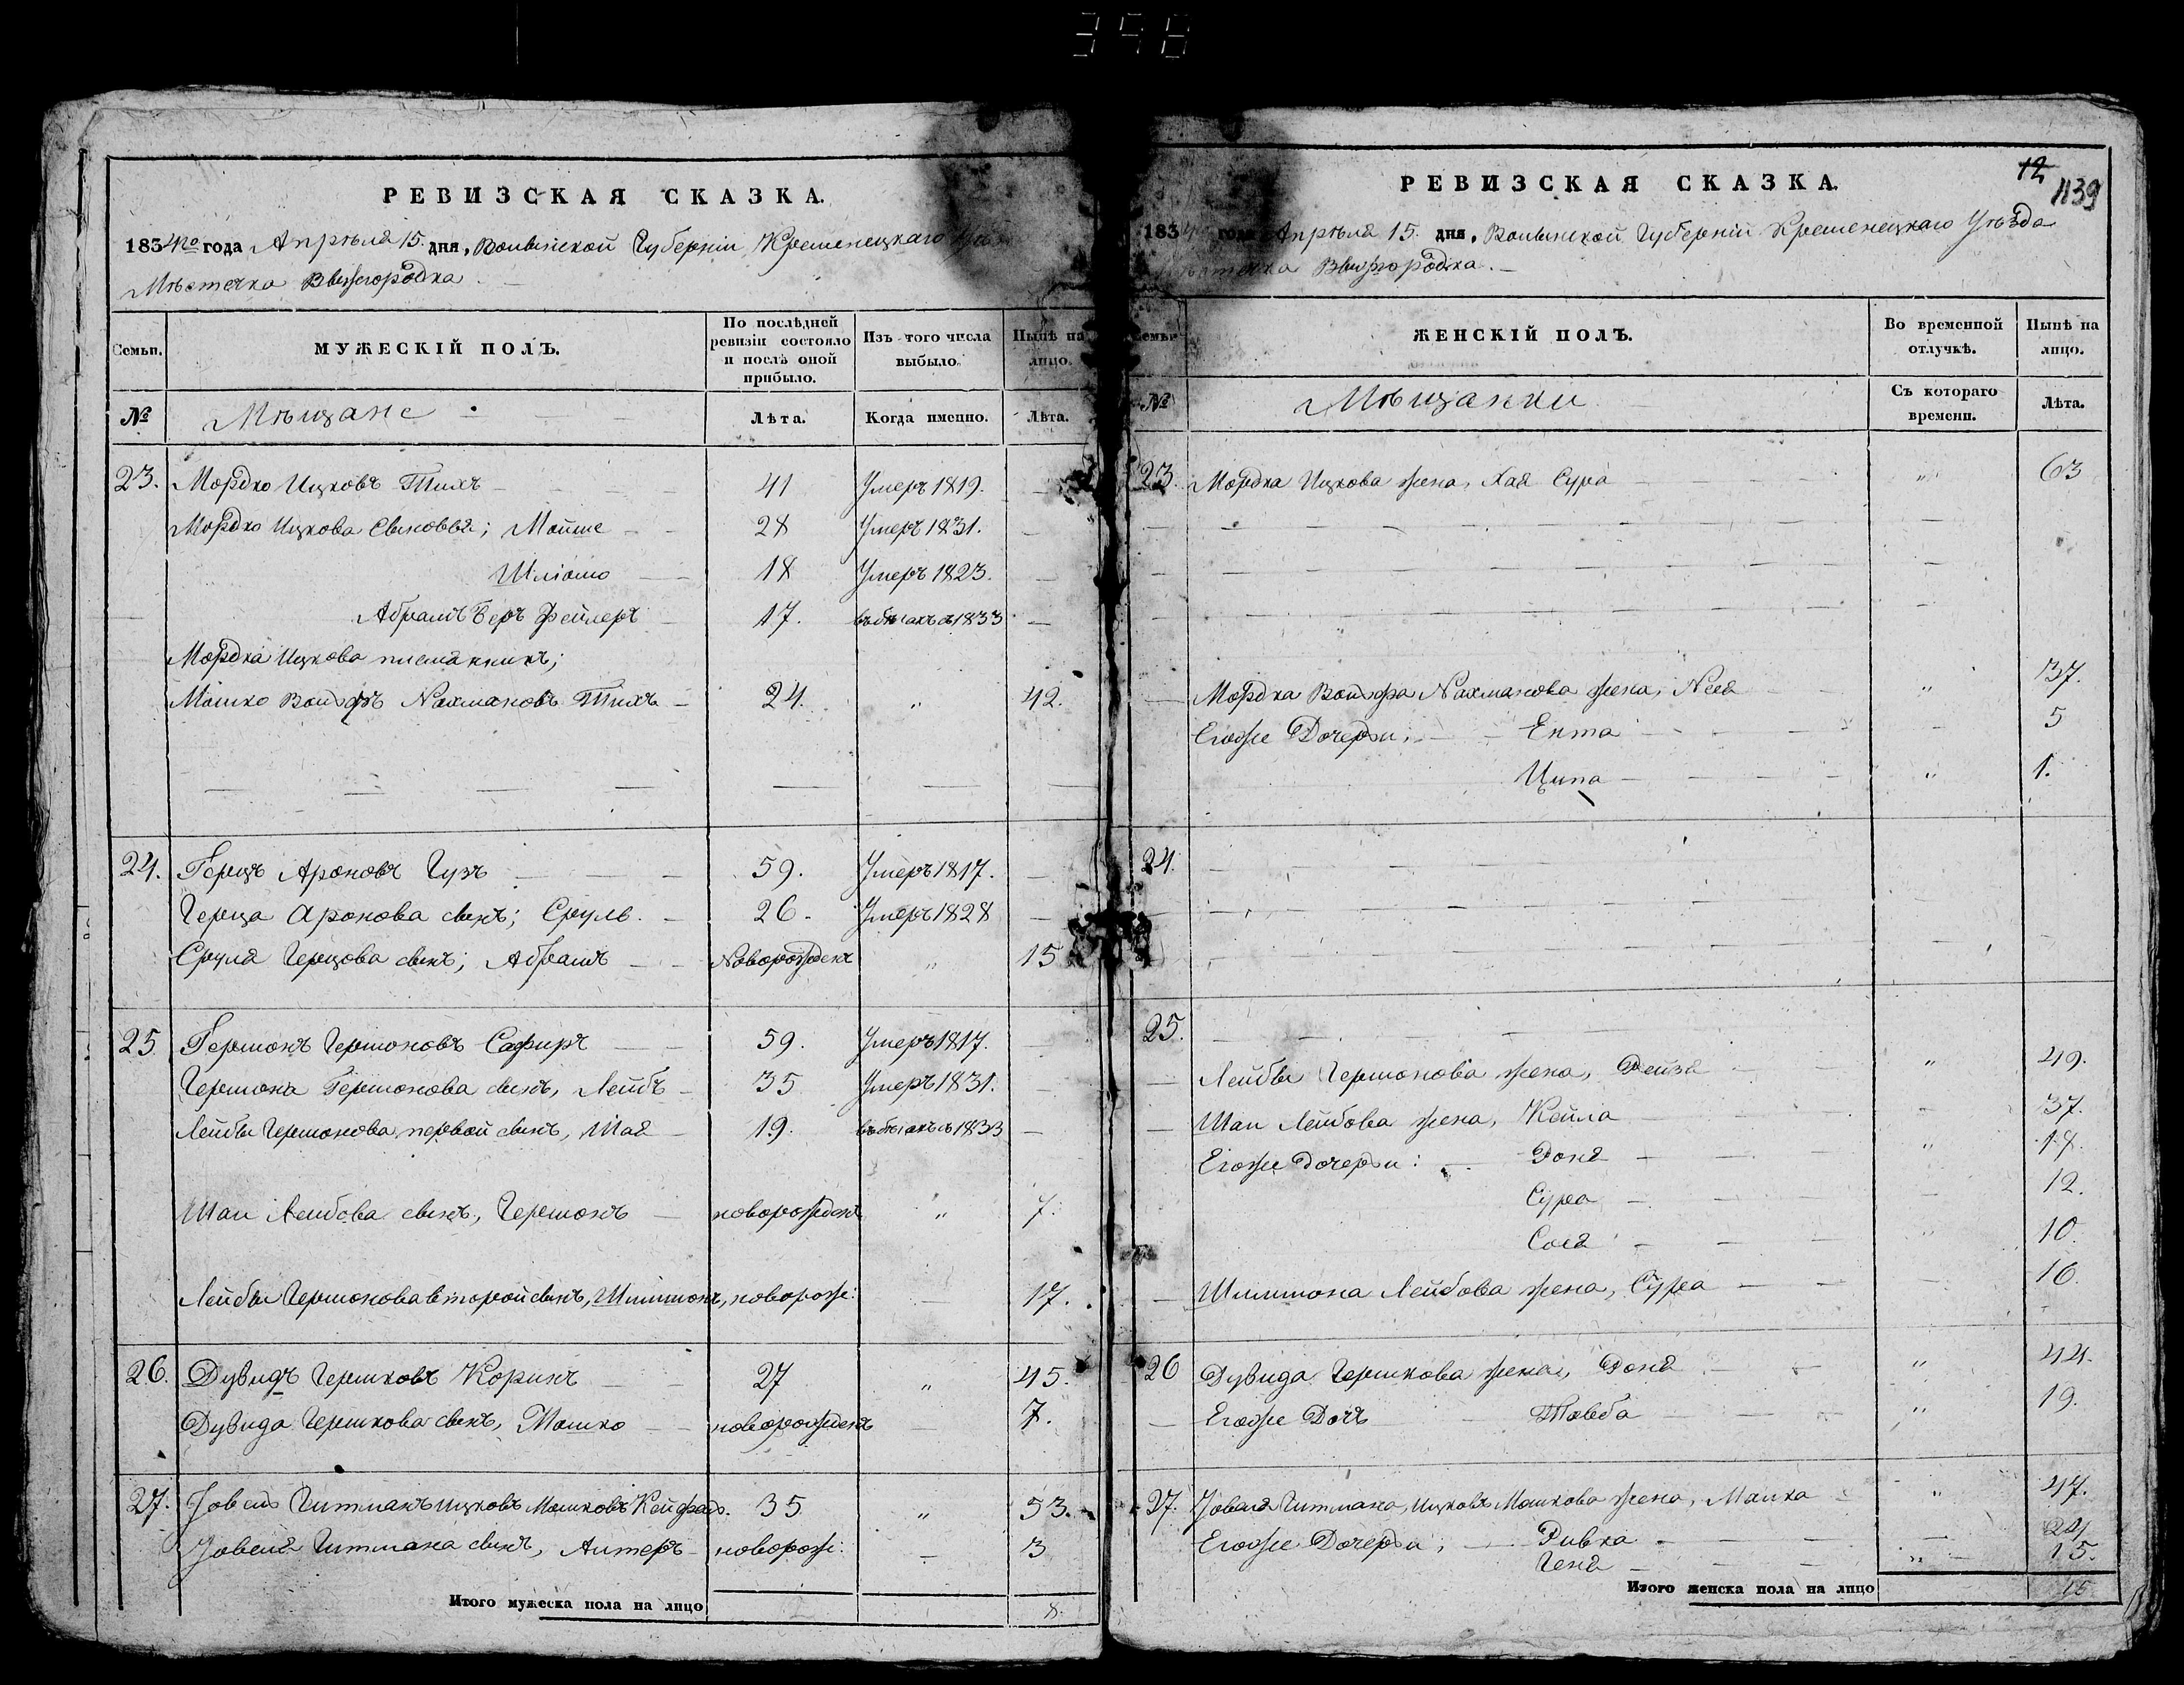 398
РЕВИЗСКАЯ СКАЗКА.
1834го года Апрѣля 15. дня, Волынской Губерніи Кременецкаго
Мѣстечка Вышгородка.
Семьи. МУЖЕСКІЙ ПОЛЪ. По послѣдней ревизіи состояло и послѣ оной прибыло. Изъ того числа выбыло. Нынѣ на лицо.
№ Мѣщане Лѣта. Когда имянно. Лѣта.
23. Мордко Ицковъ Тихъ 41 Умеръ 1819. —
Мордко Ицкова Сыновья; Мойше 28 Умеръ 1831. —
Шліомо 18 Умеръ 1823. —
Абрамъ Беръ Фейлеръ 17. въ бѣгахъ съ 1833 —
Мордка Ицкова племянникъ;
Мошко Вольфъ Нахмановъ Тихъ — 24. „ 42.
24. Герцъ Ароновъ Гузъ 59. Умеръ 1817. —
Герца Аронова сынъ; Сруль. 26. Умеръ 1828 —
Сруля Герцова сынъ; Абрамъ Новорожденъ „ 15
25 Гершонъ Гершоновъ Сафиръ 59. Умеръ 1817. —
Гершона Гершонова сынъ, Лейбъ 35 Умеръ 1831. —
Лейбы Гершонова первой сынъ, Шая 19. въ бѣгахъ съ 1833 —
Шаи Лейбова сынъ, Гершонъ новорожденъ „ 7.
Лейбы Гершонова второй сынъ, Шимшонъ, новорож: 17.
26. Дувидъ Гершковъ Коринъ 27 „ 45.
Дувида Гершкова сынъ, Мошко новорожденъ 7.
27. Іовель Гитманъ Ицковъ Мошковъ 35 „ 53.
Іовеля Гитмана сынъ, Алтеръ новорож: — 3
Итого мужеска пола на лицо 8.
12
1139
РЕВИЗСКАЯ СКАЗКА.
1834 года Апрѣля 15. дня, Волынской Губерніи Кременецкаго Уѣзда
Мѣстечка Вышгородка.
Семьи ЖЕНСКІЙ ПОЛЪ. Во временной отлучкѣ. Нынѣ на лицо.
№ Мѣщанки Съ котораго времени. Лѣта.
23. Мордка Ицкова жена, Хая Сура „ 63
Мордка Вольфа Нахманова жена, Неся „ 37.
Егоже Дочери; Ента 5
Ципа „ 1.
24.
25.
Лейбы Гершонова жена, Рейзя „ 49.
Шаи Лейбова жена, Кейла 37.
Егоже дочери: Роня „ 18.
Сура 12.
Сося 10.
Шимшона Лейбова жена, Сура 16.
26 Дувида Гершкова жена, Роня „ 44.
Егоже Дочь Товба „ 19.
27. Іовеля Гитмана, Ицковъ Мошкова жена, Малка „ 47.
Егоже Дочери; Ривка 24
Геня „ 15.
Итого женска пола на лицо 15